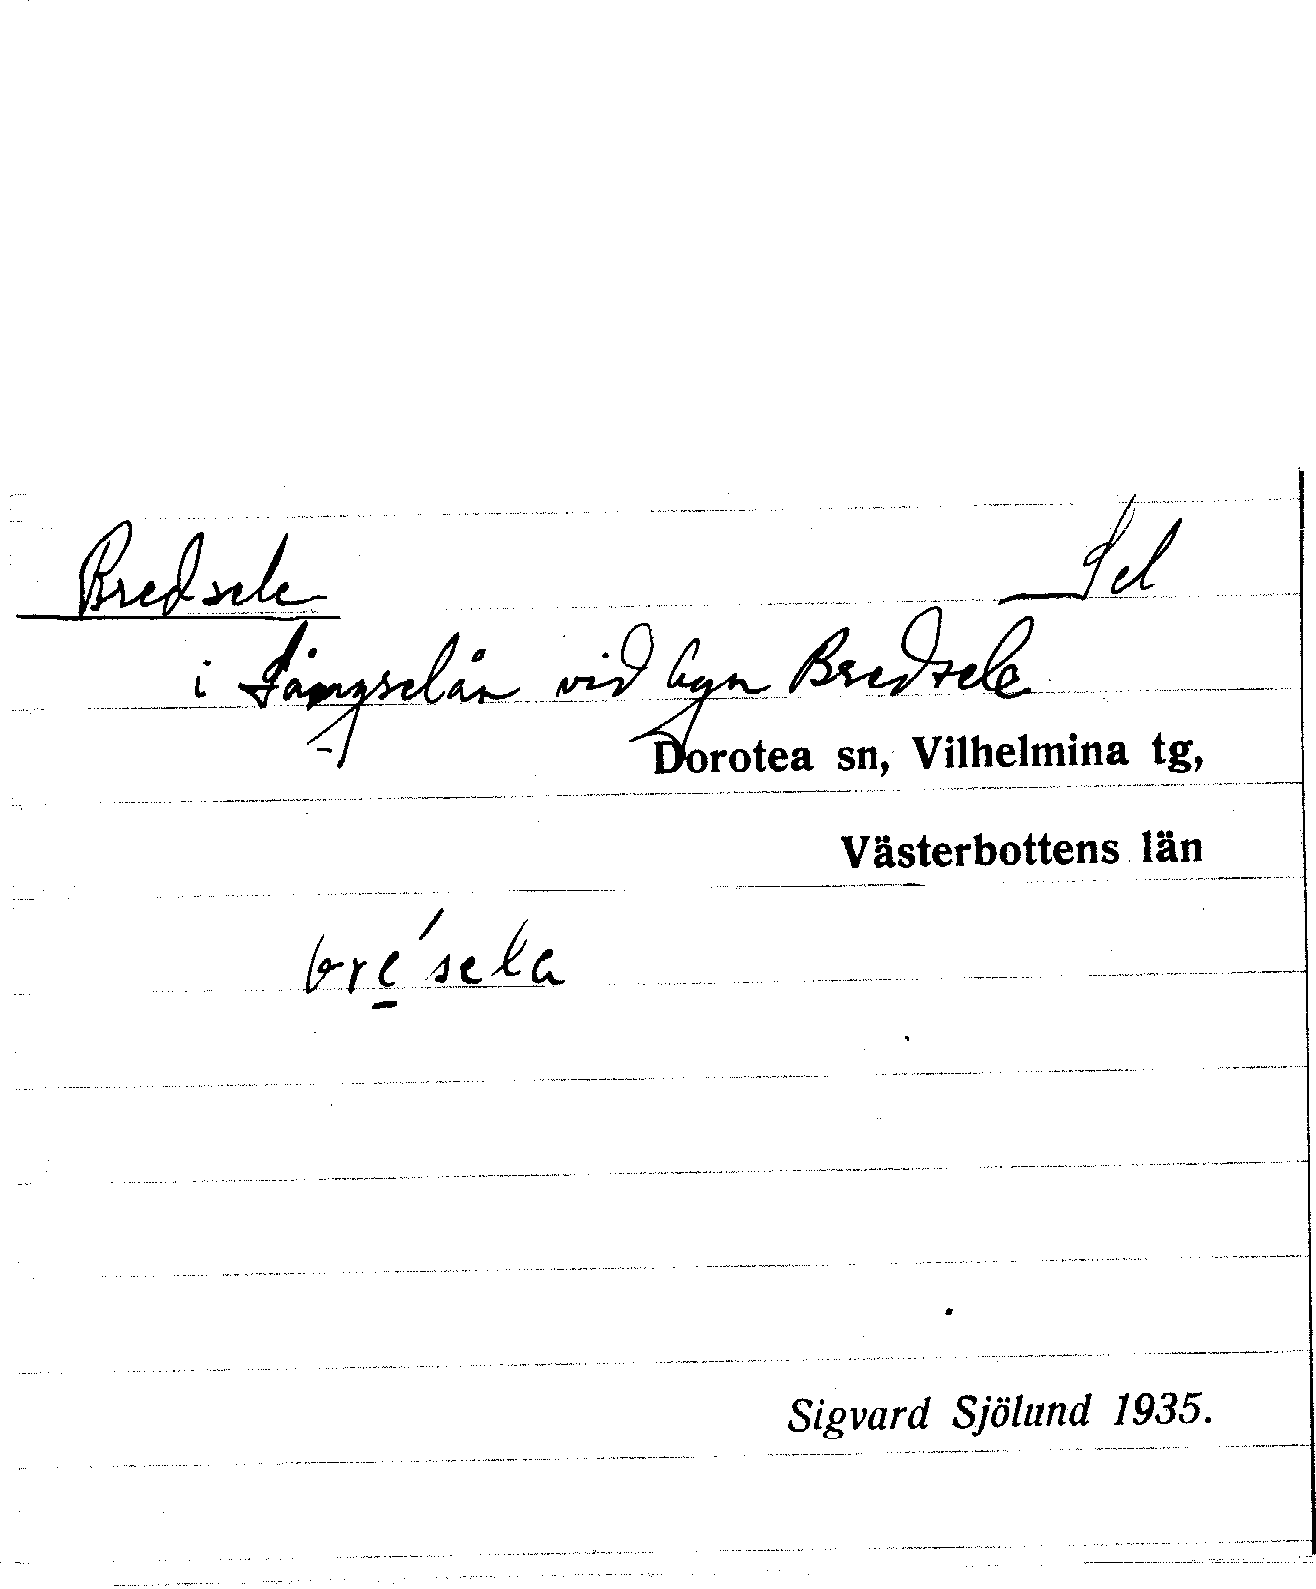 Bredsele Sel
i Långselån vid byn Bredsele
Dorotea sn, Vilhelmina tg,
Västerbottens län
bre̲´sela
Sigvard Sjölund 1935.